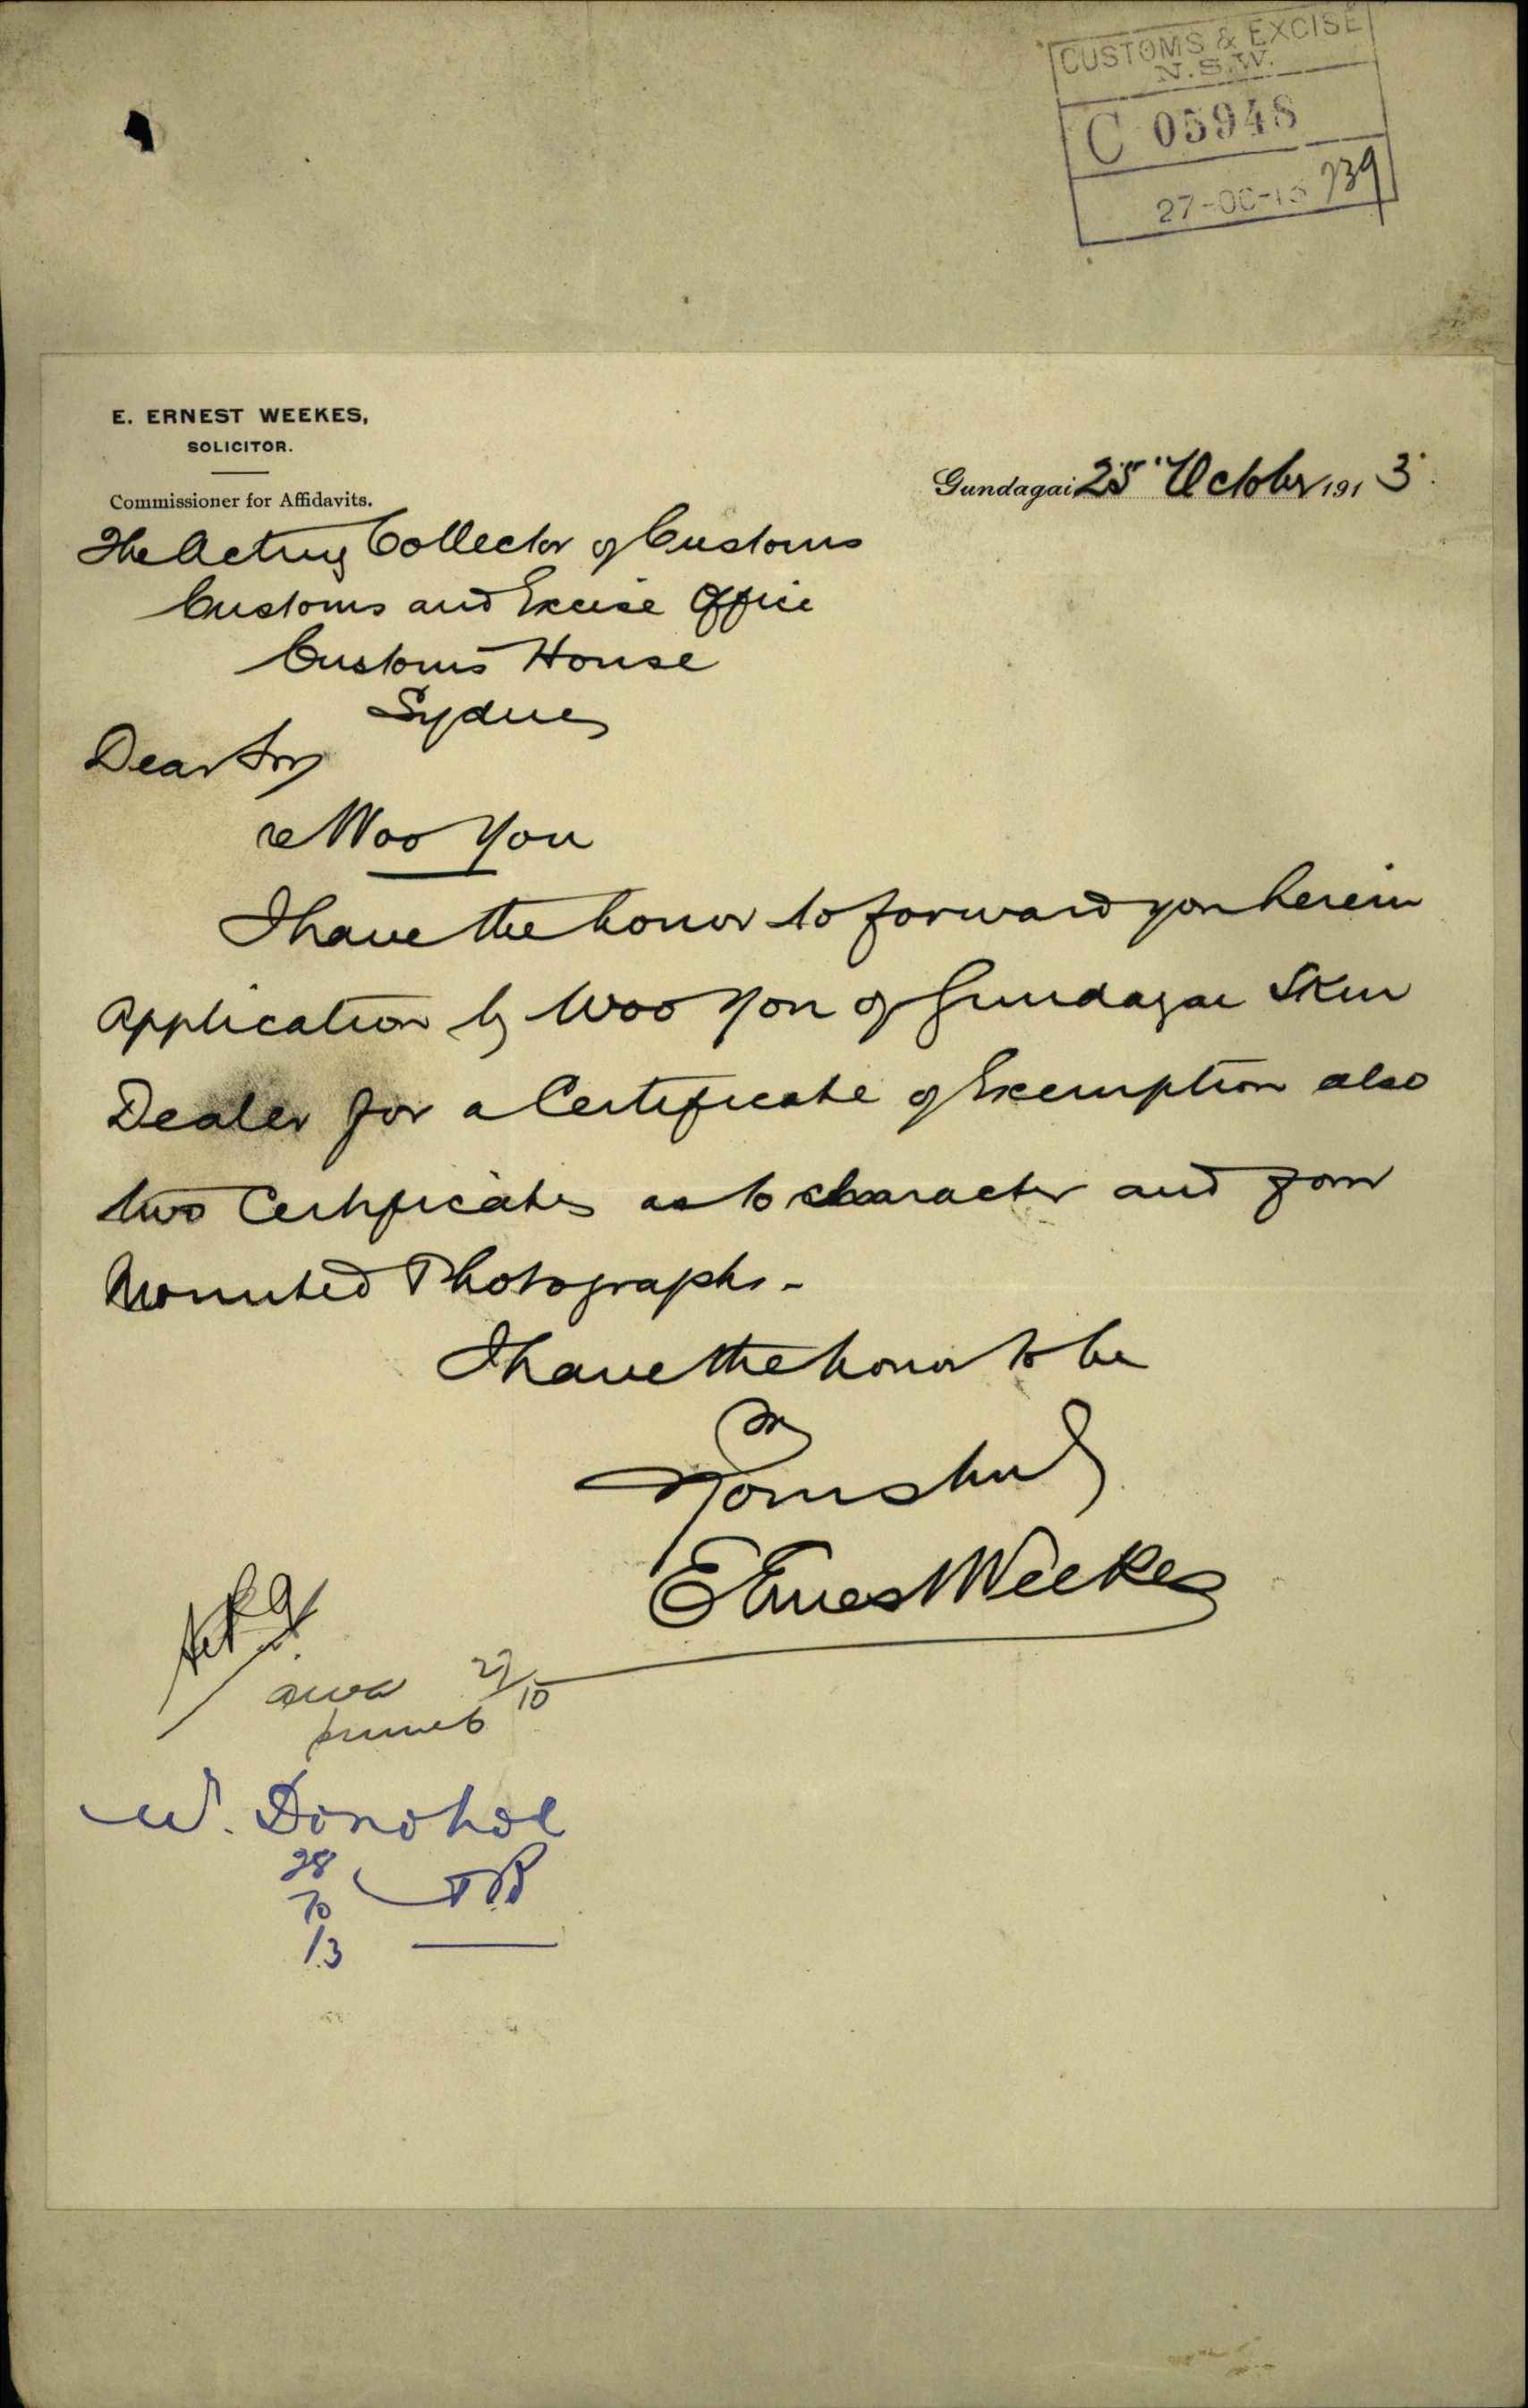 CUSTOMS & EXCISE
N.S.W.
C 05948
27-OC-13 739
E. ERNEST WEEKES,
SOLICITOR.
Commissioner for Affidavits.
Gundagai 25th October 1913.
The Acting Collector of Customs
Customs and Excise Office
Customs House
Sydney
Dear Sir
re Woo You
I have the honor to forward you herein
Application by Woo You of Gundagai Skin
Dealer for a Certificate of Exemption also
two Certificates as to character and four
Mounted Photographs -
I have the honor to be
Sir
Yours truly
E Ernest Weekes
27/10
W. Donohoe
28
10
13